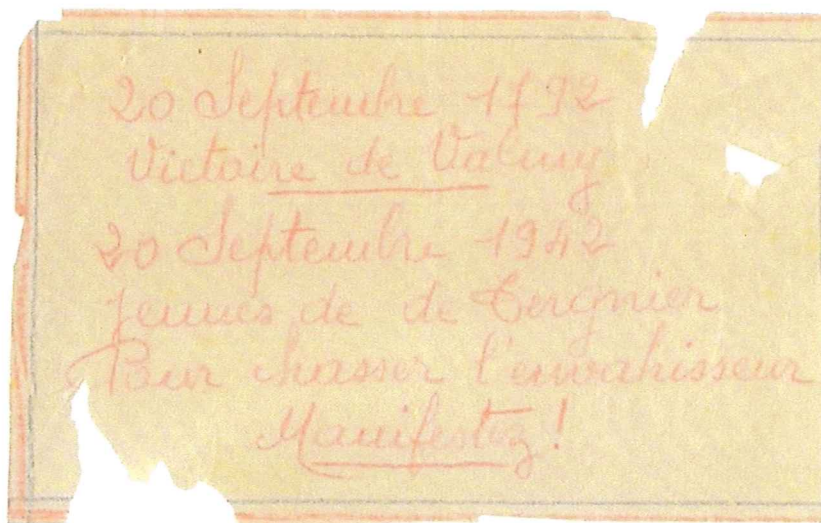 20 Septembre 1792
Victoire de Valmy
20 Septembre 1942
Jeunes de de Tergnier
Pour chasser l'envahisseur
Manifestez!